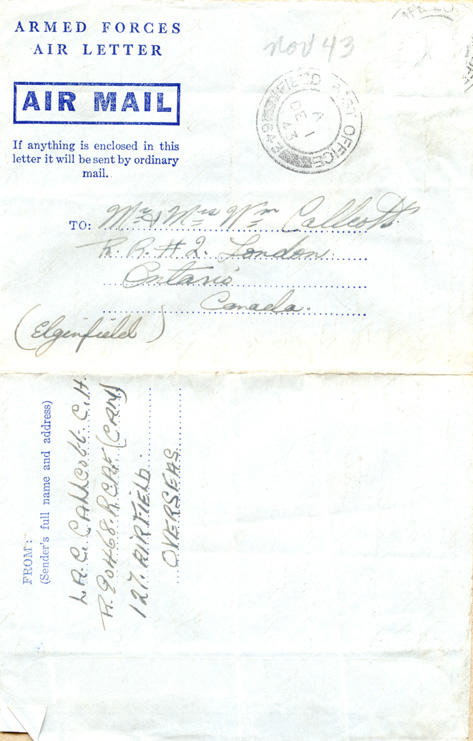 ARMED FORCES
AIR LETTER
AIR MAIL
If anything is enclosed in this
letter it will be sent by ordinary
mail.
Nov 43
FIELD POST OFFICE
A
DE 1
43
TO: Mr & Mrs Wm Callcott
R.R.#2. London
Ontario
Canada.
(Elginfield)
FROM:
(Sender's full name and address)
L.A.C. CALLCOTT. C.H.
R.90468. R.C.A.F. (CAN)
127. AIRFIELD.
OVERSEAS